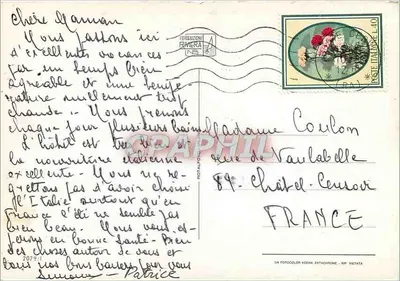 Chère Maman
Nous passons ici
d'excellentes vacances
par un temps bien
agréable et une tempé-
rature nullement trop
chaude. Nous prenons
chaque jour plusieurs bains
l'hôtel est très bien
la nourriture italienne
excellente. Nous ne re-
grettons pas d'avoir choisi
l'Italie surtout qu'en
France l'été ne semble pas
bien beau. Nous vous es-
pérons en bonne santé. Bien
des choses autour de vous et
tous nos bons baisers pour vous
Simone - Patrice
Madame Coulon
rue de Vaulabelle
89. Châtel-Censoir
FRANCE
RIVIERA
POSTE ITALIANE L. 40
CPAPHIL
2079-1